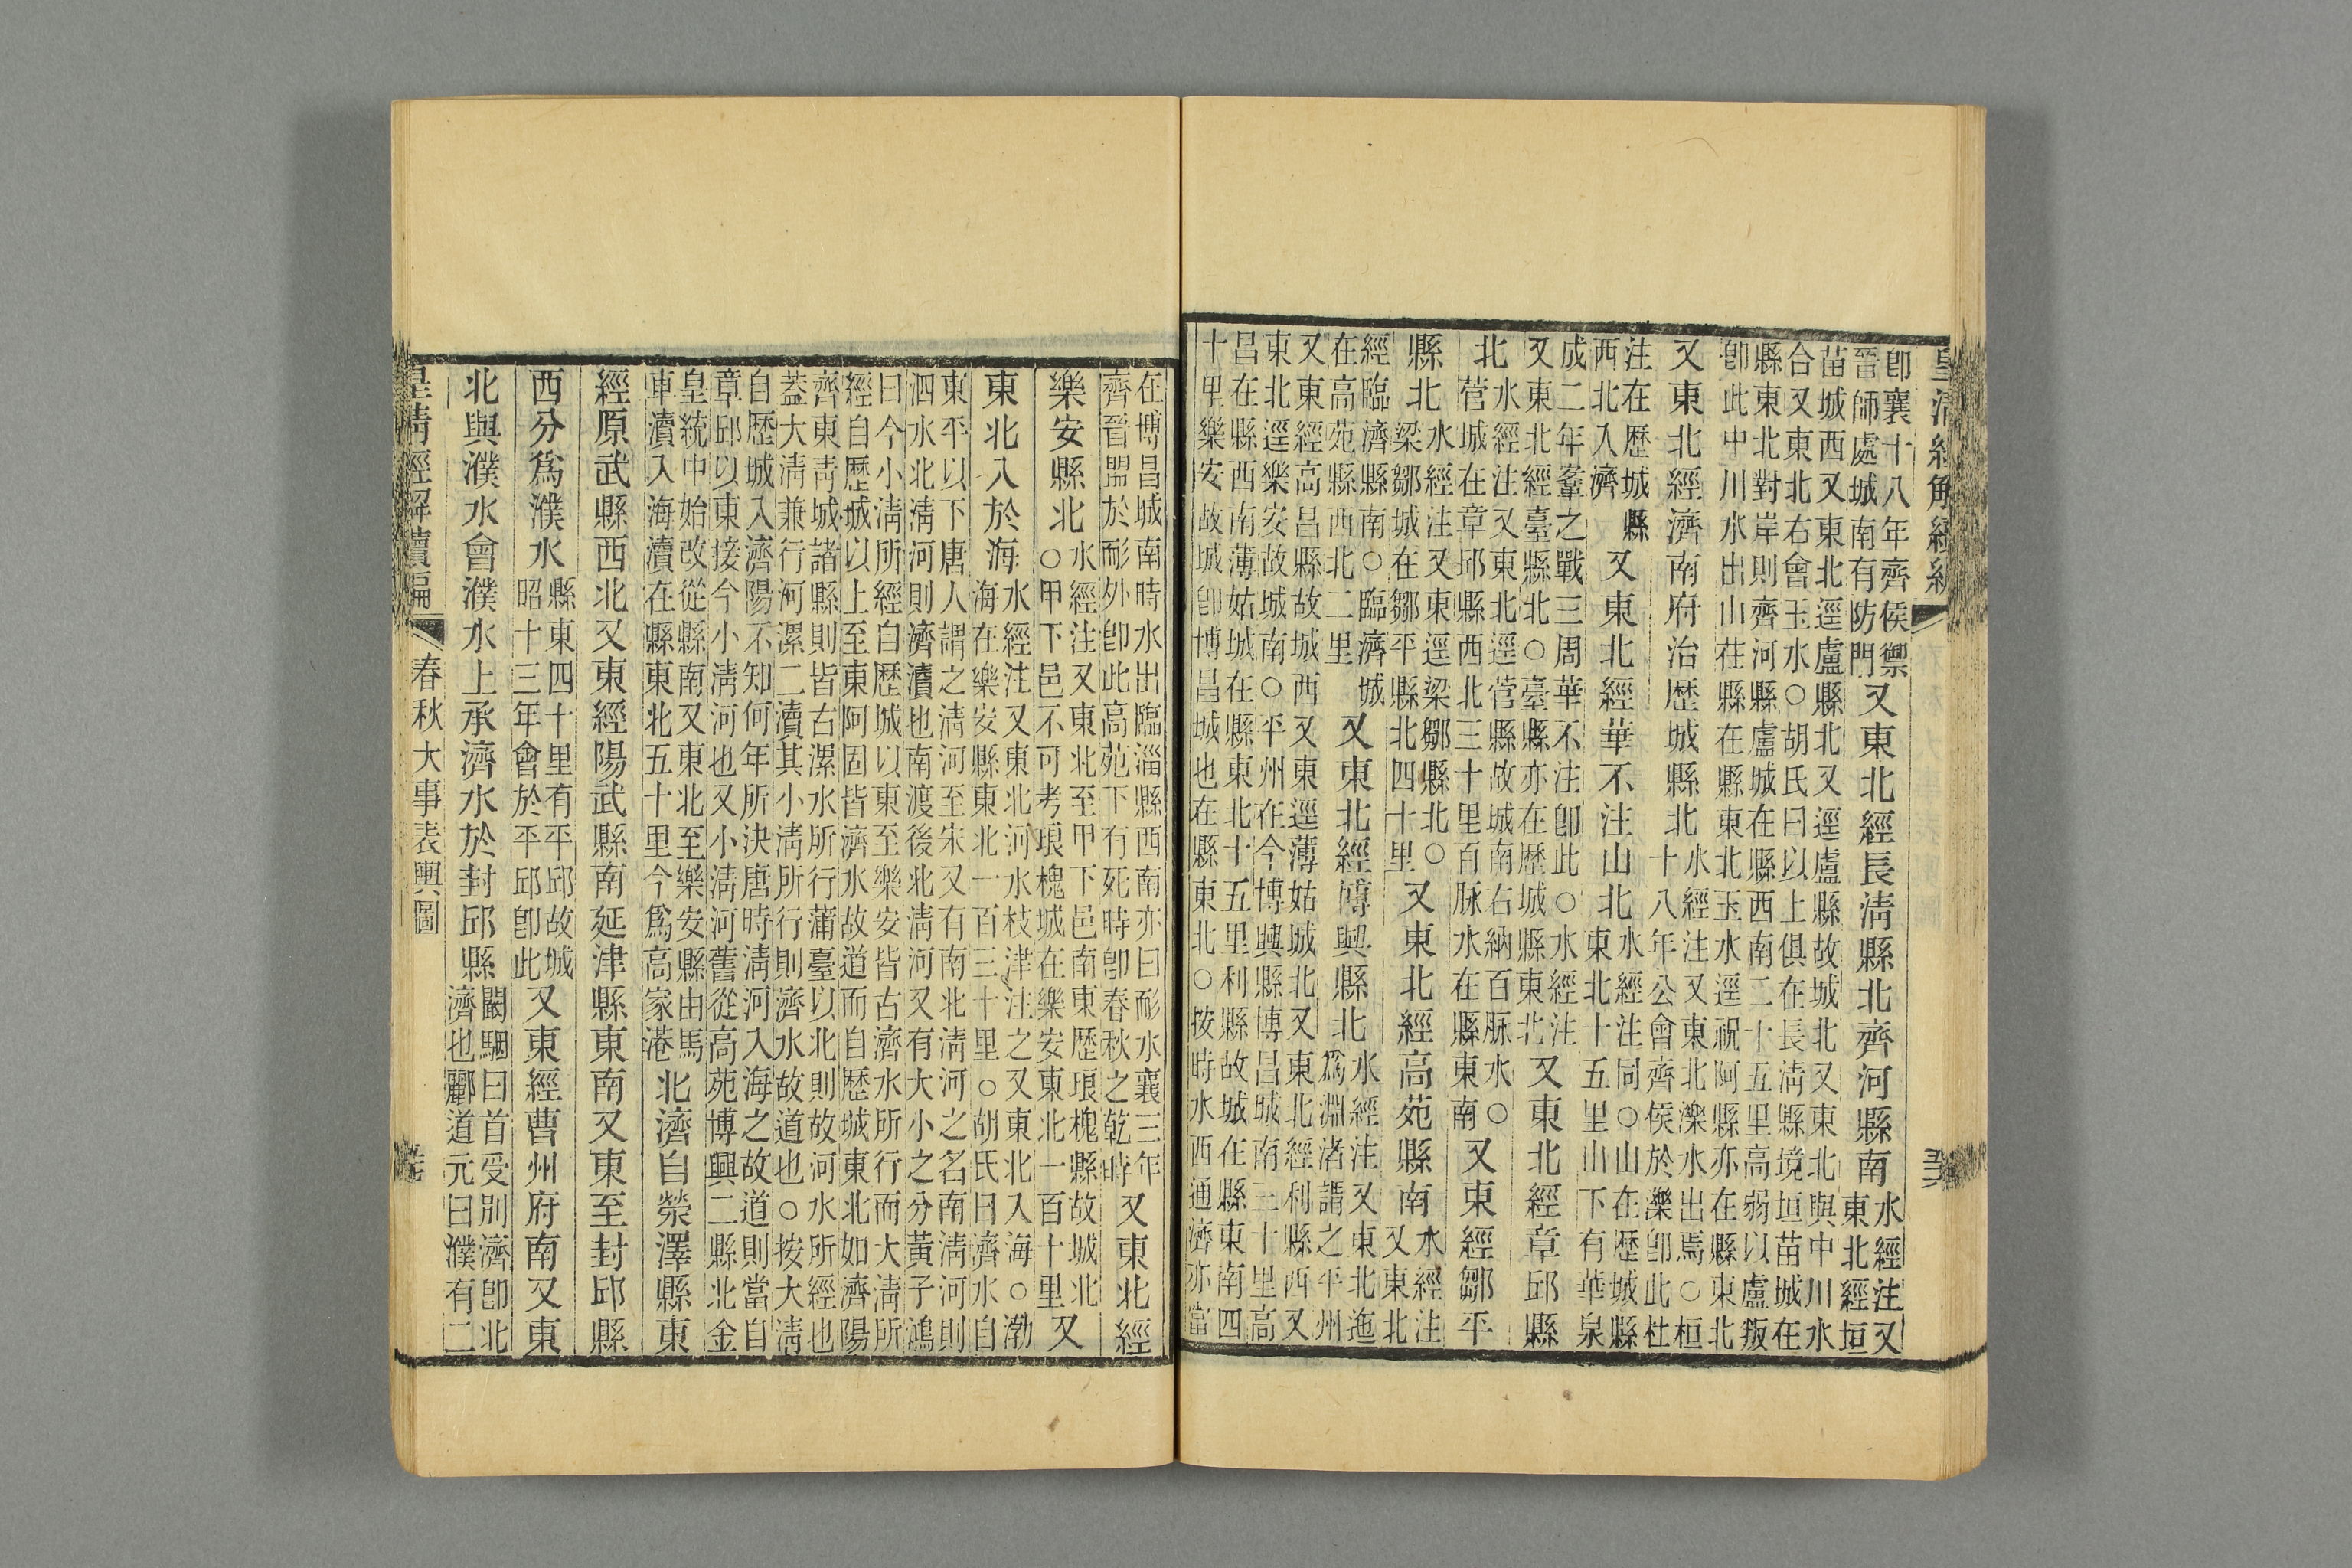 皇淸經解續編
卽襄十八年齊侯禦
晉師處城南有防門
又東北經長淸縣北齊河縣南
水經注又
東北經垣
苗城西又東北逕盧縣北又逕盧縣故城北又東北與中川水
合又東北右會玉水○胡氏曰以上俱在長淸縣境垣苗城在
縣東北對岸則齊河縣盧城在縣西南二十五里高弱以盧叛
卽此中川水出山茌縣在縣東北玉水逕祝阿縣亦在縣東北
又東北經濟南府治歷城縣北
水經注又東北濼水出焉○桓
十八年公會齊侯於濼卽此杜
注在歷城縣
西北入濟
又東北經華不注山北
水經注同○山在歷城縣
東北十五里山下有華泉
成二年鞌之戰三周華不注卽此○水經注
又東北經臺縣北○臺縣亦在歷城縣東北
又東北經章邱縣
北
水經注又東北逕菅縣故城南右納百脉水○
菅城在章邱縣西北三十里百脉水在縣東南
又東經鄒平
縣北
水經注又東逕梁鄒縣北○
梁鄒城在鄒平縣北四十里
又東北經高苑縣南
水經注
又東北
經臨濟縣南○臨濟城
在高苑縣西北二里
又東北經博興縣北
水經注又東北迤
爲淵渚謂之平州
又東經高昌縣故城西又東逕薄姑城北又東北經利縣西又
東北逕樂安故城南○平州在今博興縣博昌城南三十里高
昌在縣西南薄姑城在縣東北十五里利縣故城在縣東南四
十里樂安故城卽博昌城也在縣東北○按時水西通濟亦當
在博昌城南時水出臨淄縣西南亦曰耏水襄三年
齊晉盟於耏外卽此高苑下有死時卽春秋之乾時
又東北經
樂安縣北
水經注又東北至甲下邑南東歷琅槐縣故城北
○甲下邑不可考琅槐城在樂安東北一百十里
又
東北入於海
水經注又東北河水枝津注之又東北入海○渤
海在樂安縣東北一百三十里○胡氏曰濟水自
東平以下唐人謂之淸河至宋又有南北淸河之名南淸河則
泗水北淸河則濟瀆也南渡後北淸河又有大小之分黃子鴻
曰今小淸所經自歷城以東至樂安皆古濟水所行而大淸所
經自歷城以上至東阿固皆濟水故道而自歷城東北如濟陽
齊東靑城諸縣則皆右漯水所行蒲臺以北則故河水所經也
蓋大淸兼行河漯二瀆其小淸所行則濟水故道也○按大淸
自歷城入濟陽不知何年所決唐時淸河入海之故道則當自
章邱以東接今小淸河也又小淸河舊從高苑博興二縣北金
皇統中始改從縣南又東北至樂安縣由馬
車瀆入海瀆在縣東北五十里今爲高家港
北濟自滎澤縣東
經原武縣西北又東經陽武縣南延津縣東南又東至封邱縣
西分爲濮水
縣東四十里有平邱故城
昭十三年會於平邱卽此
又東經曹州府南又東
北與濮水會濮水上承濟水於封邱縣
闞駰曰首受別濟卽北
濟也酈道元曰濮有二
皇淸經解續編
春秋大事表輿圖